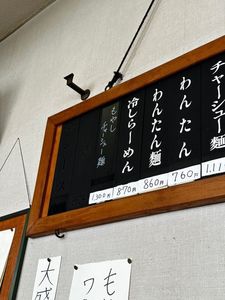 チャーシュー麺
わんたん
760円
わんたん麺
860円
冷しらーめん
870円
もやし
チャーシュー麺
1300円
も
大盛